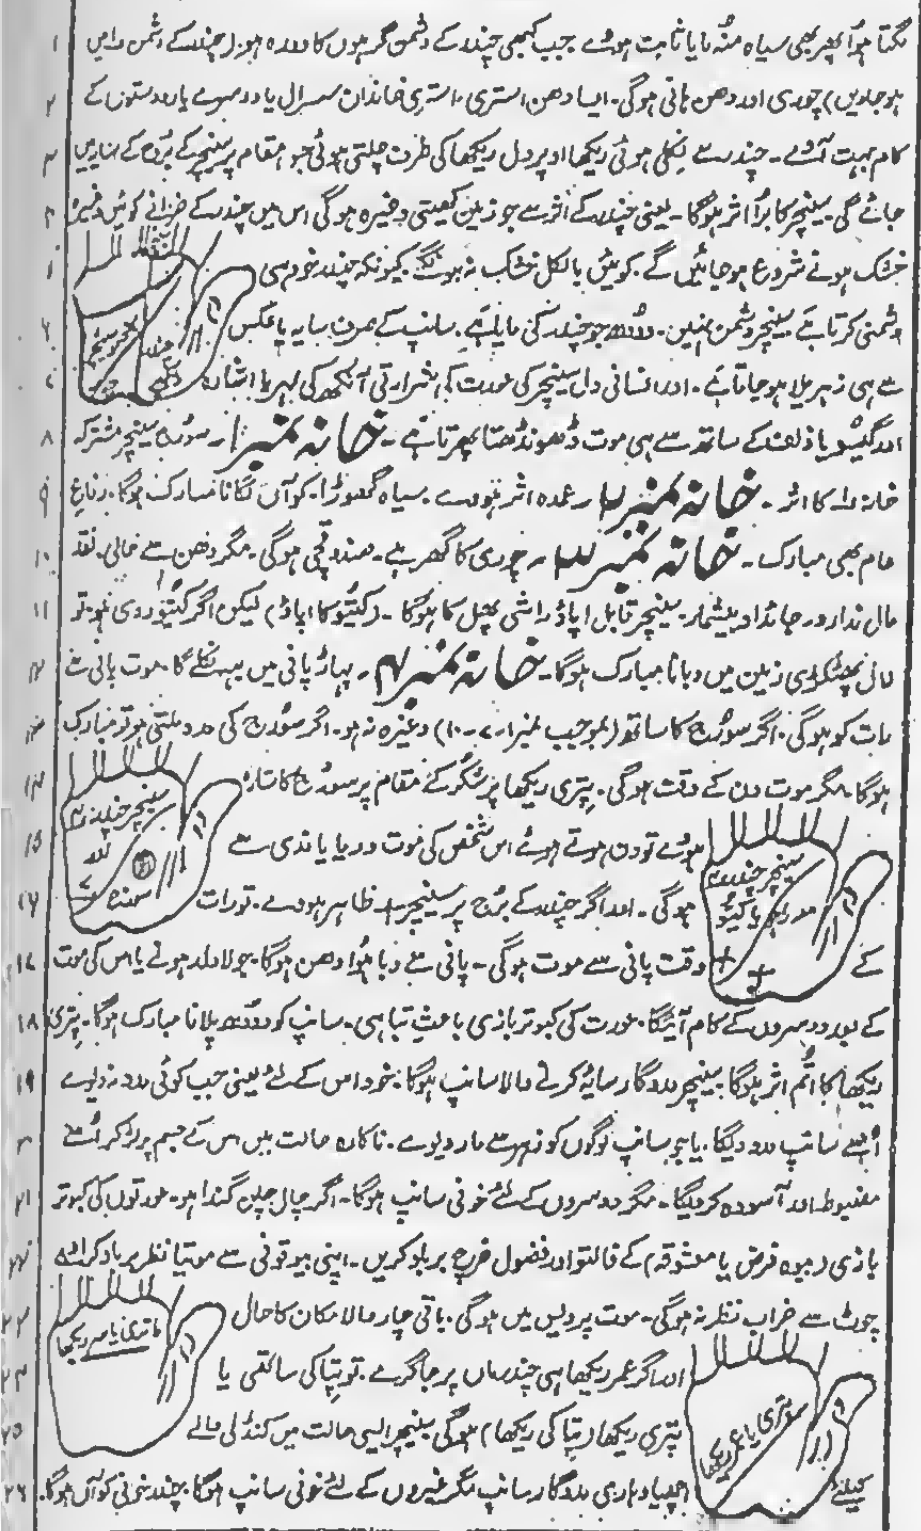 نکتا ہوا پھر بھی سیاہ منہ مایا ثابت ہووے جب کبھی چندر کے دشمن گرہوں کا دورہ ہو (چندر کے دشمن دائیں ۱
ہو جاویں) چوری اور دھن ہانی ہوگی۔ ایسا دھن استری، استری خاندان سسرال یا دوسرے یار دوستوں کے ۲
کام بہت آوے۔ چندر سے نکلی ہوئی ریکھا اوپر دل ریکھا کی طرف چلتی ہوئی جو مقام پر سنیچر کے برج کے ۳
جائے گی۔ سنیچر کا برا اثر ہوگا۔ یعنی چندر کے اثر سے جو زمین کھیتی وغیرہ ہوگی اس میں چندر کے خزانے کوئیں وغیرہ ۴
خشک ہونے شروع ہو جائیں گے۔ کوئیں بالکل خشک نہ ہوں گے۔ کیونکہ چندر خود ہی
دشمنی کرتا ہے سنیچر دشمن نہیں۔ دودھ جو چندر کی مایا ہے۔ سانپ کے صرف سایہ یا عکس ۶
سے ہی زہریلا ہو جاتا ہے۔ اور انسانی دل سنیچر کی عورت کی شرارتی آنکھ کی لہر یا اشارہ ۷
اور گیسو یا زلف کے ساتھ سے ہی موت ڈھونڈھتا پھرتا ہے۔ خانہ نمبر ۱۔ سورج سنیچر مشترکہ ۸
خانہ ۱ کا اثر۔ خانہ نمبر ۲۔ عمدہ اثر ہووے۔ سیاہ گھوڑا۔ کوآں لگانا مبارک ہوگا۔ رفاہِ ۹
عام بھی مبارک۔ خانہ نمبر ۳۔ چوری کا گھر ہے۔ صندوقچی ہوگی۔ مگر دھن سے خالی۔ نقد ۱۰
مال ندارد جائداد بیشمار۔ سنیچر قابل اپاؤ راشی پھل کا ہوگا۔ (کیتو کا اپاؤ) لیکن اگر کیتو ردی ہو تو ۱۱
لال پھٹکڑی زمین میں دبانا مبارک ہوگا۔ خانہ نمبر ۴۔ پہاڑ پانی میں بہہ نکلے گا۔ موت پانی سے ۱۲
رات کو ہوگی۔ اگر سورج کا ساتھ (بموجب نمبر ۱۔۷۔۱۰) وغیرہ نہ ہو۔ اگر سورج کی مدد ملتی ہو تو مبارک ۱۳
ہوگا۔ مگر موت دن کے وقت ہوگی۔ پتری ریکھا پر شکر کے مقام پر سورج کا ستارہ ۱۴
ہووے تو دن ہوتے ہوئے اس شخص کی موت دریا یا ندی سے ۱۵
ہوگی۔ اور اگر چندر کے برج پر سنیچر + ظاہر ہووے۔ تو رات ۱۶
کے وقت پانی سے موت ہوگی۔ پانی سے دبا ہوا دھن ہوگا۔ جو لاولد ہونے یا اس کی موت ۱۷
کے بعد دوسروں کے کام آئیگا۔ عورت کی کبوتر بازی باعث تباہی۔ سانپ کو دودھ پلانا مبارک ہوگا۔ پتری ۱۸
ریکھا کا اتم اثر ہوگا۔ سنیچر مددگار سایہ کرنے والا سانپ ہوگا۔ خود اس کے لئے یعنی جب کوئی مدد نہ دیوے ۱۹
اُسے سانپ مدد دیگا۔ یا جو سانپ لوگوں کو زہر سے مار دیوے۔ ناکارہ حالت میں اس کے جسم پر لڑ کر اسے ۲۰
مضبوط اور آسودہ کر دیگا۔ مگر دوسروں کے لئے خونی سانپ ہوگا۔ اگر چال چلن گندا ہو۔ عورتوں کی کبوتر ۲۱
بازی (بیوہ فرض یا معشوقہ) کے فالتو اور فضول خرچ برباد کریں۔ اپنی بیوقوفی سے موتیا نظر برباد کرائے ۲۲
چوٹ سے خراب نظر نہ ہوگی۔ موت پردیس میں ہوگی۔ باقی چار والا مکان کا حال ۲۳
اور اگر عمر ریکھا ہی چندر ماں پر جا گرے۔ تو پتا کی سالکتی یا ۲۴
پتری ریکھا (پتا کی ریکھا) ہوگی سنیچر ایسی حالت میں کنڈلی والے ۲۵
کیلئے اچھیا دھاری مددگار سانپ مگر غیروں کے لئے خونی سانپ ہوگا۔ چندر خونی کوآں ہوگا۔ ۲۶